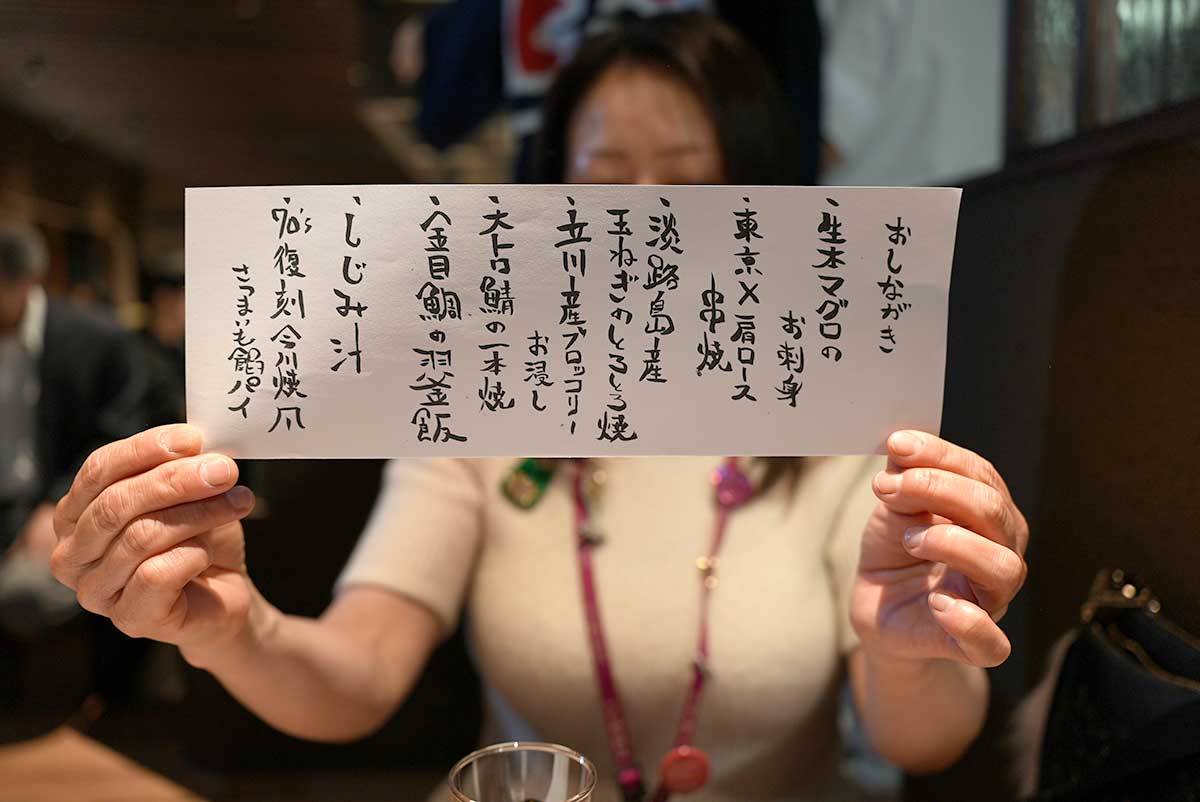 おしながき
・生本マグロの
お刺身
・東京X肩ロース
串焼
・淡路島産
玉ねぎのとろとろ焼
・立川産ブロッコリー
お浸し
・大トロ鯖の一本焼
・金目鯛の羽釜飯
・しじみ汁
・70's復刻今川焼風
さつまいも餡パイ